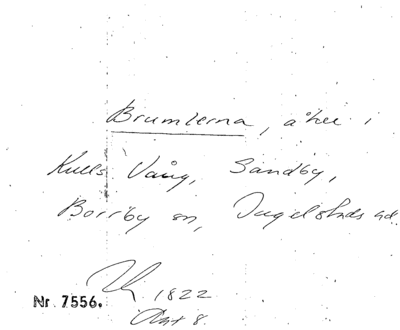 Brumlerna, åker i
Kulls Vång, Sandby,
Borrby sn, Ingelstads hd.
1822
Akt 8.
Nr 7556.